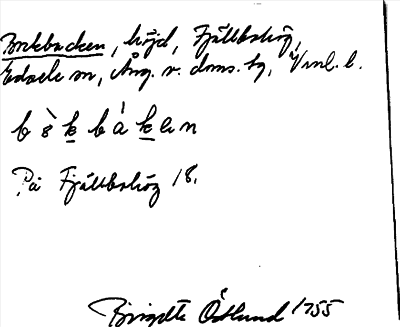 Bockbacken, höjd, Fjällbohög,
Edsele sn, Ång. v. doms. tg, Vnl. l.
På Fjällbohög 18.
Birgitta Östlund 1755